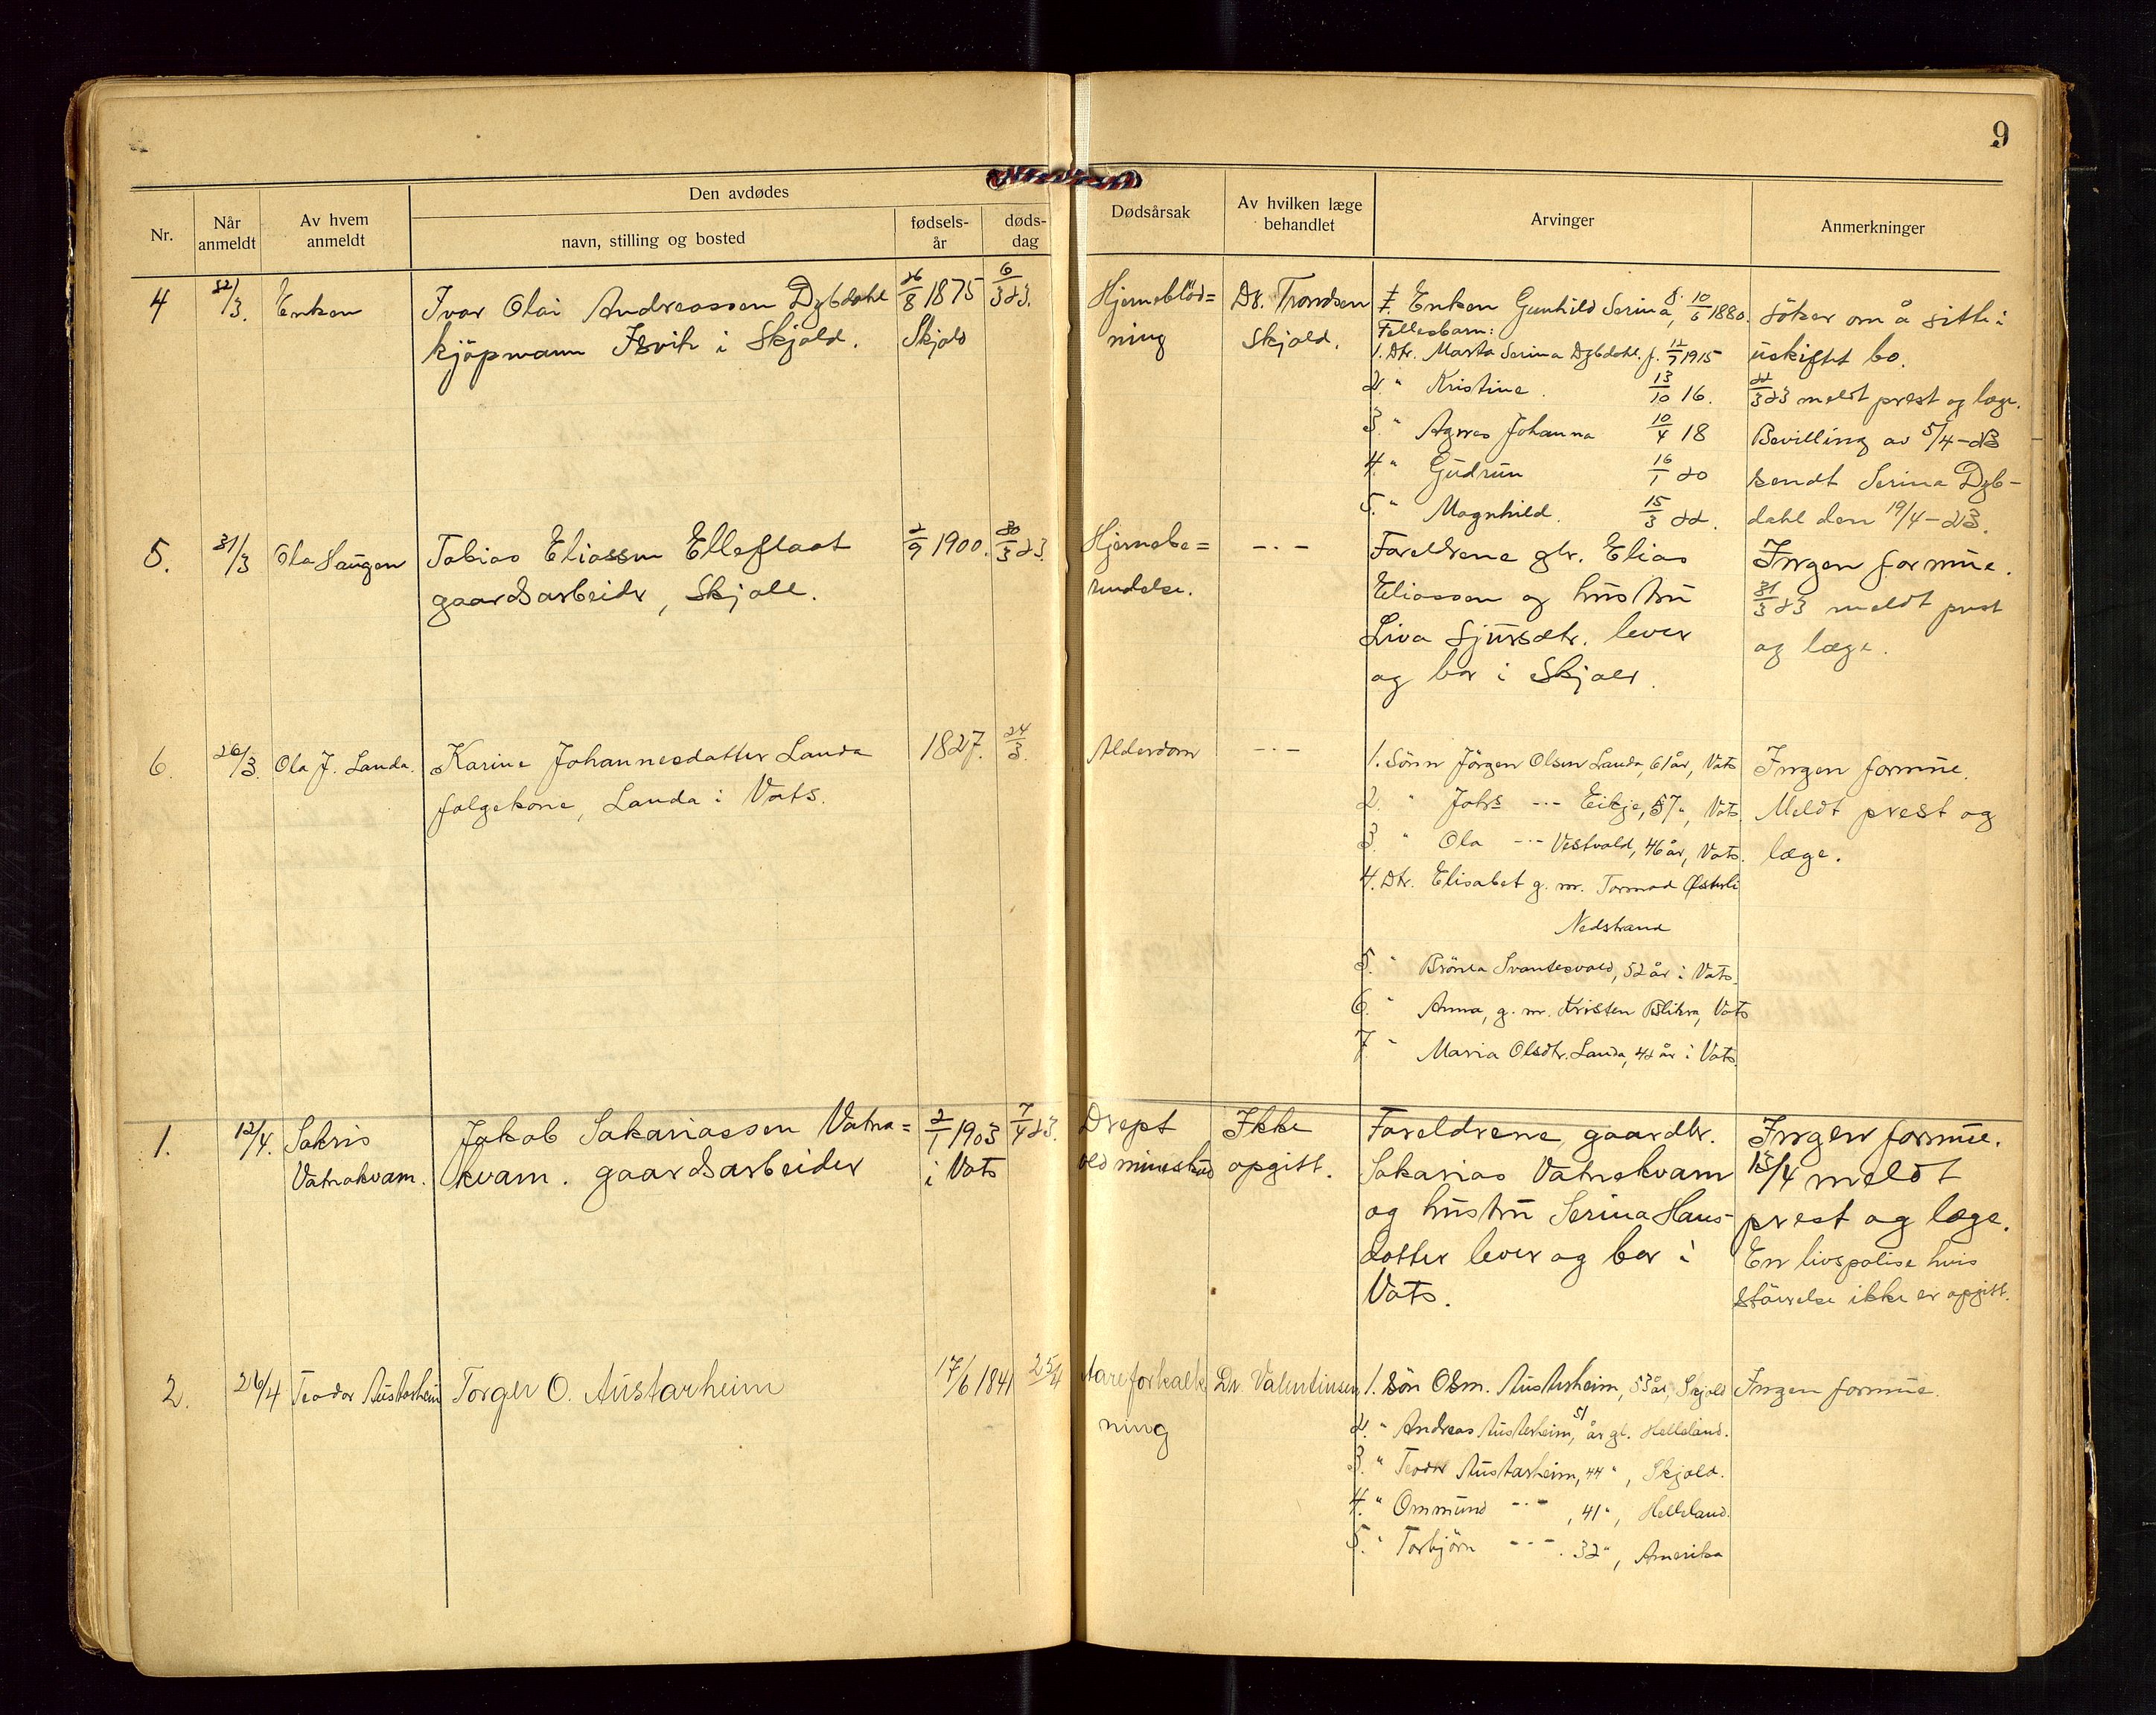 9
Nr.
Når anmeldt
Av hvem anmeldt
Den avdødes
navn, stilling og bosted
fødsels-år
døds-dag
Dødsårsak
Av hvilken læge behandlet
Arvinger
Anmerkninger
4
22/3.
Enken
Ivar Olai Andreassen Dybdahl
kjöpmann Isvik i Skjold.
26/8 1875
Skjold
6/3 23.
Hjerneblöd=
ning
Dr. Trondsen
Skjold.
I. Enken Gunhild Serina, f. 10/6 1880.
Fellesbarn:
1. Dtr. Marta Serina Dybdahl. f. 12/7 1915
2. " Kristine. 13/10 16.
3. " Agnes Johanna 10/4 18
4. " Gudrun 16/1 20
5. " Magnhild. 15/3 22.
söker om å sitte i
uskiftet bo.
22/3 23 meldt prest og læge.
Bevilling av 5/4-23
sendt Serina Dyb-
dahl den 19/4-23.
5.
31/3
Ola Haugen
Tobias Eliassen Elleflaat
gaardsarbeider, Skjold.
2/9 1900.
30/3 23.
Hjernebe=
rudelse.
-"-
Foreldrene gbr. Elias
Eliassen og hustru
Liva Sjursdtr. lever
og bor i Skjold.
Ingen formue.
31/3 23 meldt prest
og læge.
6.
26/3.
Ola J. Landa.
Karine Johannesdatter Landa
folgekone, Landa i Vats.
1827.
24/3.
Alderdom
-"-
1. Sönn Jörgen Olsen Landa, 61 år, Vats
2. " Johs -"- Eikje, 57 ", Vats
3. " Ola -"- Vestvold, 46 år, Vats.
4. Dtr. Elisabet g. m. Tormod Østerli
Nedstrand
5. " Brönla Svantesvold, 52 år i Vats.
6. " Anna, g. m. Kristen Blikra, Vats
7. " Maria Olsdtr. Landa, 42 år i Vats.
Ingen formue.
Meldt prest og
læge.
1.
12/4.
Sakris
Vatnakvam.
Jakob Sakariassen Vatna=
kvam. gaardsarbeider
2/1 1903
i Vats
7/4 23.
Drept
ved mineskud
Ikke
opgitt.
Foreldrene gaardbr.
Sakarias Vatnekvam
og hustru Serina Hans-
datter lever og bor i
Vats.
Ingen formue.
15/4 meldt
prest og læge.
En livspolise hvis
störrelse ikke er opgitt.
2.
26/4
Teodor Austarheim
Torger O. Austarheim
17/6 1841
25/4
Aareforkalk
ning
Dr. Valentinsen
1. Sön Osm. Austerheim, 53 år, Skjold
2. " Andreas Austerheim, 51 år gl. Helleland.
3. " Teodor Austarheim, 44 ", Skjold.
4. " Ommund -"- , 41 ", Helleland.
5. " Torbjörn -"- . 32 ", Amerika
Ingen formue.